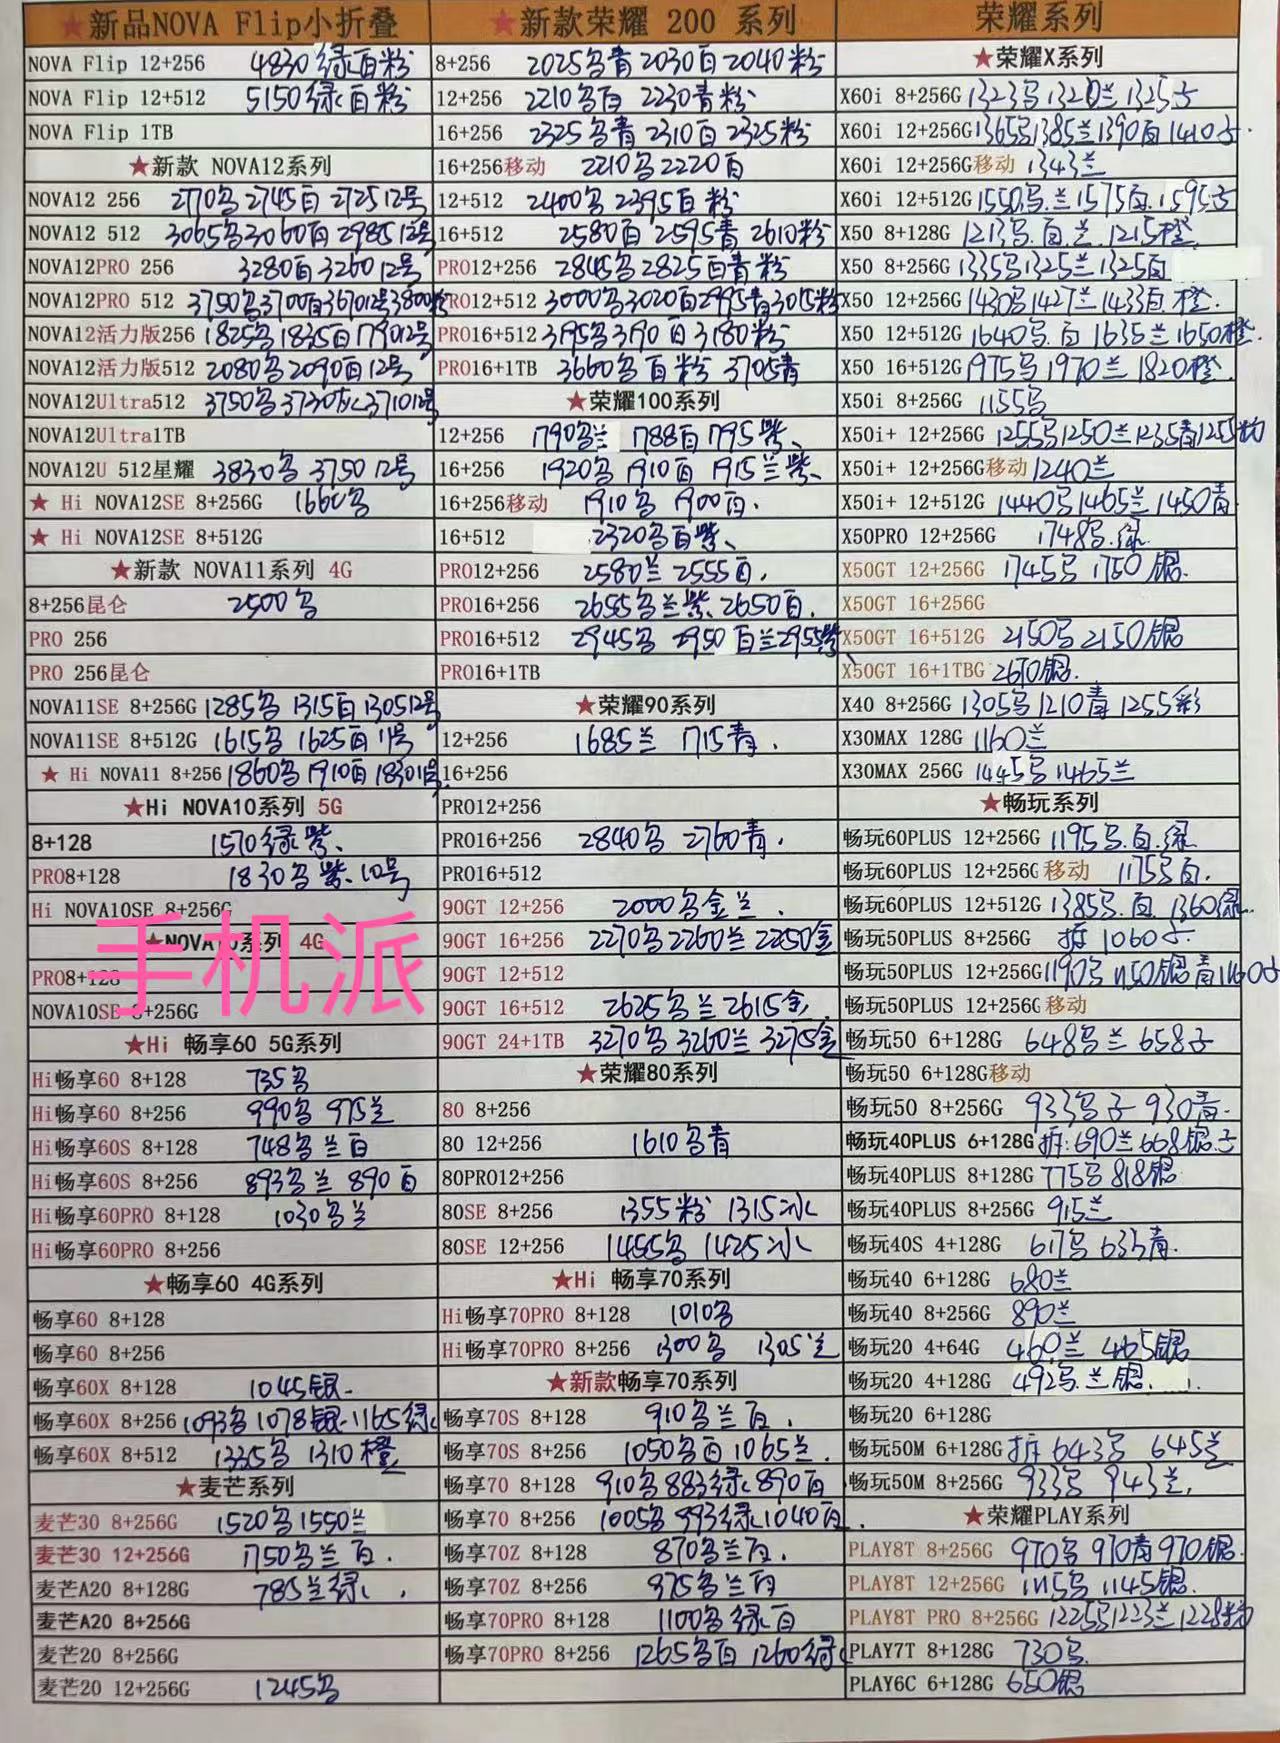 ★新品NOVA Flip小折叠
NOVA Flip 12+256 4830绿白粉
NOVA Flip 12+512 5150绿白粉
NOVA Flip 1TB
★新款 NOVA12系列
NOVA12 256 2770乌 2745白 2725 12号
NOVA12 512 3065乌 3060白 2985 12号
NOVA12PRO 256 3280白 3260 12号
NOVA12PRO 512 3750乌 3700白 3670 12号 3800粉
NOVA12活力版256 1825乌 1835白 1790 12号
NOVA12活力版512 2080乌 2090白 12号
NOVA12Ultra512 3750乌 3730灰 3710 12号
NOVA12Ultra1TB
NOVA12U 512星耀 3830乌 3750 12号
★ Hi NOVA12SE 8+256G 1660乌
★ Hi NOVA12SE 8+512G
★新款 NOVA11系列 4G
8+256昆仑 2500乌
PRO 256
PRO 256昆仑
NOVA11SE 8+256G 1285乌 1315白 1305 12号
NOVA11SE 8+512G 1615乌 1625白 11号
★ Hi NOVA11 8+256 1860乌 1910白 1830 11号
★Hi NOVA10系列 5G
8+128 1570绿紫、
PRO8+128 1830乌紫、10号
Hi NOVA10SE 8+256G
★NOVA10系列 4G
手机派
PRO8+128
NOVA10SE 8+256G
★Hi 畅享60 5G系列
Hi畅享60 8+128 735乌
Hi畅享60 8+256 990乌 975兰
Hi畅享60S 8+128 748乌兰白
Hi畅享60S 8+256 893乌兰 890白
Hi畅享60PRO 8+128 1030乌兰
Hi畅享60PRO 8+256
★畅享60 4G系列
畅享60 8+128
畅享60 8+256
畅享60X 8+128 1045银
畅享60X 8+256 1093乌 1078银 1165绿
畅享60X 8+512 1335乌 1310橙
★麦芒系列
麦芒30 8+256G 1520乌 1550兰
麦芒30 12+256G 1750乌兰白.
麦芒A20 8+128G 785兰绿
麦芒A20 8+256G
麦芒20 8+256G
麦芒20 12+256G 1245乌
★新款荣耀 200 系列
8+256 2025乌青 2030白 2040粉
12+256 2210乌白 2230青粉
16+256 2325乌青 2310白 2325粉
16+256移动 2210乌 2220白
12+512 2400乌 2395白粉
16+512 2580白 2595青 2610粉
PRO12+256 2845乌 2825白青粉
PRO12+512 3000乌 3020白 2995青 3015粉
PRO16+512 3195乌 3190白 3180粉
PRO16+1TB 3660乌白粉 3705青
★荣耀100系列
12+256 1790乌兰 1788白 1795紫、
16+256 1920乌 1910白 1915兰紫、
16+256移动 1910乌 1900白.
16+512 2320乌白紫、
PRO12+256 2580兰 2555白.
PRO16+256 2655乌兰紫、2650白.
PRO16+512 2945乌 2950白兰 2955紫
PRO16+1TB
★荣耀90系列
12+256 1685兰 1715青.
16+256
PRO12+256
PRO16+256 2840乌 2760青.
PRO16+512
90GT 12+256 2000乌金兰.
90GT 16+256 2270乌 2260兰 2250金
90GT 12+512
90GT 16+512 2625乌兰 2615金
90GT 24+1TB 3270乌 3260兰 3275金
★荣耀80系列
80 8+256
80 12+256 1610乌青
80PRO12+256
80SE 8+256 1355粉 1315冰
80SE 12+256 1455乌 1425冰
★Hi 畅享70系列
Hi畅享70PRO 8+128 1010乌
Hi畅享70PRO 8+256 1300乌 1305兰
★新款畅享70系列
畅享70S 8+128 910乌兰白.
畅享70S 8+256 1050乌白 1065兰.
畅享70 8+128 910乌 883绿 890白
畅享70 8+256 1005乌 993绿 1040白.
畅享70Z 8+128 870乌兰白.
畅享70Z 8+256 975乌兰白
畅享70PRO 8+128 1100乌绿白
畅享70PRO 8+256 1265乌白 1260绿
荣耀系列
★荣耀X系列
X60i 8+256G 1323乌 1320兰 1325
X60i 12+256G 1365乌 1385兰 1390白 1410
X60i 12+256G移动 1343兰
X60i 12+512G 1550乌.兰 1575白.1595
X50 8+128G 1213乌.白.兰.1215橙.
X50 8+256G 1335乌 1325兰 1325白
X50 12+256G 1430乌 1427兰 1433白.橙.
X50 12+512G 1640乌.白 1635兰 1650橙.
X50 16+512G 1975乌 1970兰 1820橙.
X50i 8+256G 1155乌
X50i+ 12+256G 1255乌 1250兰 1235青 1255粉
X50i+ 12+256G移动 1240兰
X50i+ 12+512G 1440乌 1465兰 1450青
X50PRO 12+256G 1748乌.绿
X50GT 12+256G 1745乌 1750银.
X50GT 16+256G
X50GT 16+512G 2150乌 2150银
X50GT 16+1TBG 2610银.
X40 8+256G 1305乌 1210青 1255彩
X30MAX 128G 1160兰
X30MAX 256G 1445乌 1465兰
★畅玩系列
畅玩60PLUS 12+256G 1195乌.白.绿
畅玩60PLUS 12+256G 移动 1175乌白.
畅玩60PLUS 12+512G 1385乌.白 1360绿.
畅玩50PLUS 8+256G 拆 1060
畅玩50PLUS 12+256G 1190乌 1150银青 1160
畅玩50PLUS 12+256G 移动
畅玩50 6+128G 648乌兰 658子
畅玩50 6+128G移动
畅玩50 8+256G 933乌子 930青.
畅玩40PLUS 6+128G 拆:690兰 668银.子
畅玩40PLUS 8+128G 775乌 818银
畅玩40PLUS 8+256G 915兰
畅玩40S 4+128G 617乌 635青.
畅玩40 6+128G 680兰
畅玩40 8+256G 890兰
畅玩20 4+64G 460兰 465银
畅玩20 4+128G 492乌.兰银.
畅玩20 6+128G
畅玩50M 6+128G 拆 643乌 645兰
畅玩50M 8+256G 933乌 943兰,
★荣耀PLAY系列
PLAY8T 8+256G 970乌 970青 970银.
PLAY8T 12+256G 1115乌 1145银.
PLAY8T PRO 8+256G 1225乌 1223兰 1228粉
PLAY7T 8+128G 730乌
PLAY6C 6+128G 650银